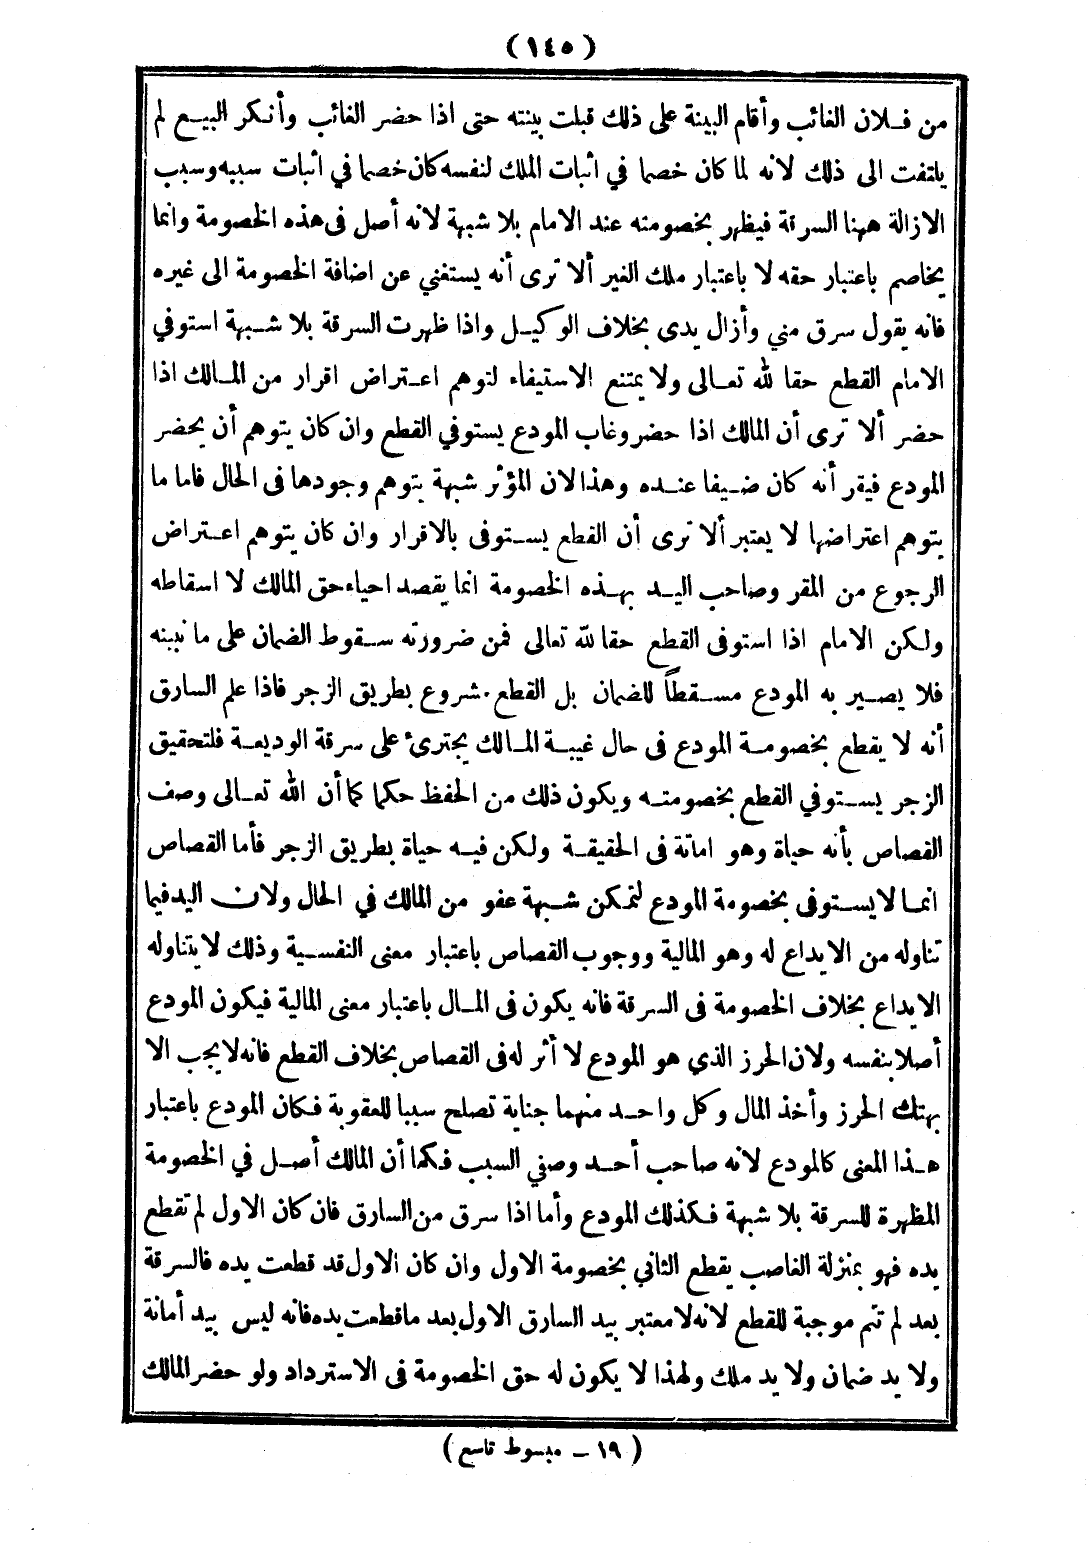 (١٤٥)
من فلان الغائب وأقام البينة على ذلك قبلت بينته حتى اذا حضر الغائب وأنكر البيع لم
يلتفت الى ذلك لانه لما كان خصما في اثبات الملك لنفسه كان خصما في اثبات سببه وسبب
الازالة ههنا السرقة فيظهر بخصومته عند الامام بلا شبهة لانه أصل فى هذه الخصومة وانما
يخاصم باعتبار حقه لا باعتبار ملك الغير ألا ترى أنه يستغني عن اضافة الخصومة الى غيره
فانه يقول سرق مني وأزال يدى بخلاف الوكيل واذا ظهرت السرقة بلا شبهة استوفي
الامام القطع حقا لله تعالى ولا يمتنع الاستيفاء لتوهم اعتراض اقرار من المالك اذا
حضر ألا ترى أن المالك اذا حضر وغاب المودع يستوفي القطع وان كان يتوهم أن يحضر
المودع فيقر أنه كان ضيفا عنده وهذا لان المؤثر شبهة يتوهم وجودها فى الحال فاما ما
يتوهم اعتراضها لا يعتبر ألا ترى أن القطع يستوفى بالاقرار وان كان يتوهم اعتراض
الرجوع من المقر وصاحب اليد بهذه الخصومة انما يقصد احياء حق المالك لا اسقاطه
ولكن الامام اذا استوفى القطع حقا لله تعالى فمن ضرورته سقوط الضمان على ما نبينه
فلا يصير به المودع مسقطاً للضمان بل القطع مشروع بطريق الزجر فاذا علم السارق
أنه لا يقطع بخصومة المودع فى حال غيبة المالك يجترئ على سرقة الوديعة فلتحقيق
الزجر يستوفي القطع بخصومته ويكون ذلك من الحفظ حكما كما أن الله تعالى وصف
القصاص بأنه حياة وهو اماتة فى الحقيقة ولكن فيه حياة بطريق الزجر فأما القصاص
انما لا يستوفى بخصومة المودع لتمكن شبهة عفو من المالك في الحال ولان اليد فيما
تناوله من الايداع له وهو المالية ووجوب القصاص باعتبار معنى النفسية وذلك لا يتناوله
الايداع بخلاف الخصومة فى السرقة فانه يكون فى المال باعتبار معنى المالية فيكون المودع
أصلا بنفسه ولان الحرز الذي هو المودع لا أثر له فى القصاص بخلاف القطع فانه لا يجب الا
بهتك الحرز وأخذ المال وكل واحد منهما جناية تصلح سببا للعقوبة فكان المودع باعتبار
هذا المعنى كالمودع لانه صاحب أحد وصفي السبب فكما أن المالك أصل في الخصومة
المظهرة للسرقة بلا شبهة فكذلك المودع وأما اذا سرق من السارق فان كان الاول لم تقطع
يده فهو بمنزلة الغاصب يقطع الثاني بخصومة الاول وان كان الاول قد قطعت يده فالسرقة
بعد لم تتم موجبة للقطع لانه لا معتبر بيد السارق الاول بعد ما قطعت يده فانه ليس بيد أمانة
ولا يد ضمان ولا يد ملك ولهذا لا يكون له حق الخصومة فى الاسترداد ولو حضر المالك
(١٩ - مبسوط تاسع)